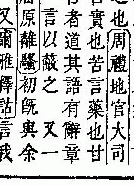 也周禮地官大司
實也苦言藥也甘
者道其語有辭章
言以蔽之 又一
原離騷初既與余
又爾雅釋詁言我